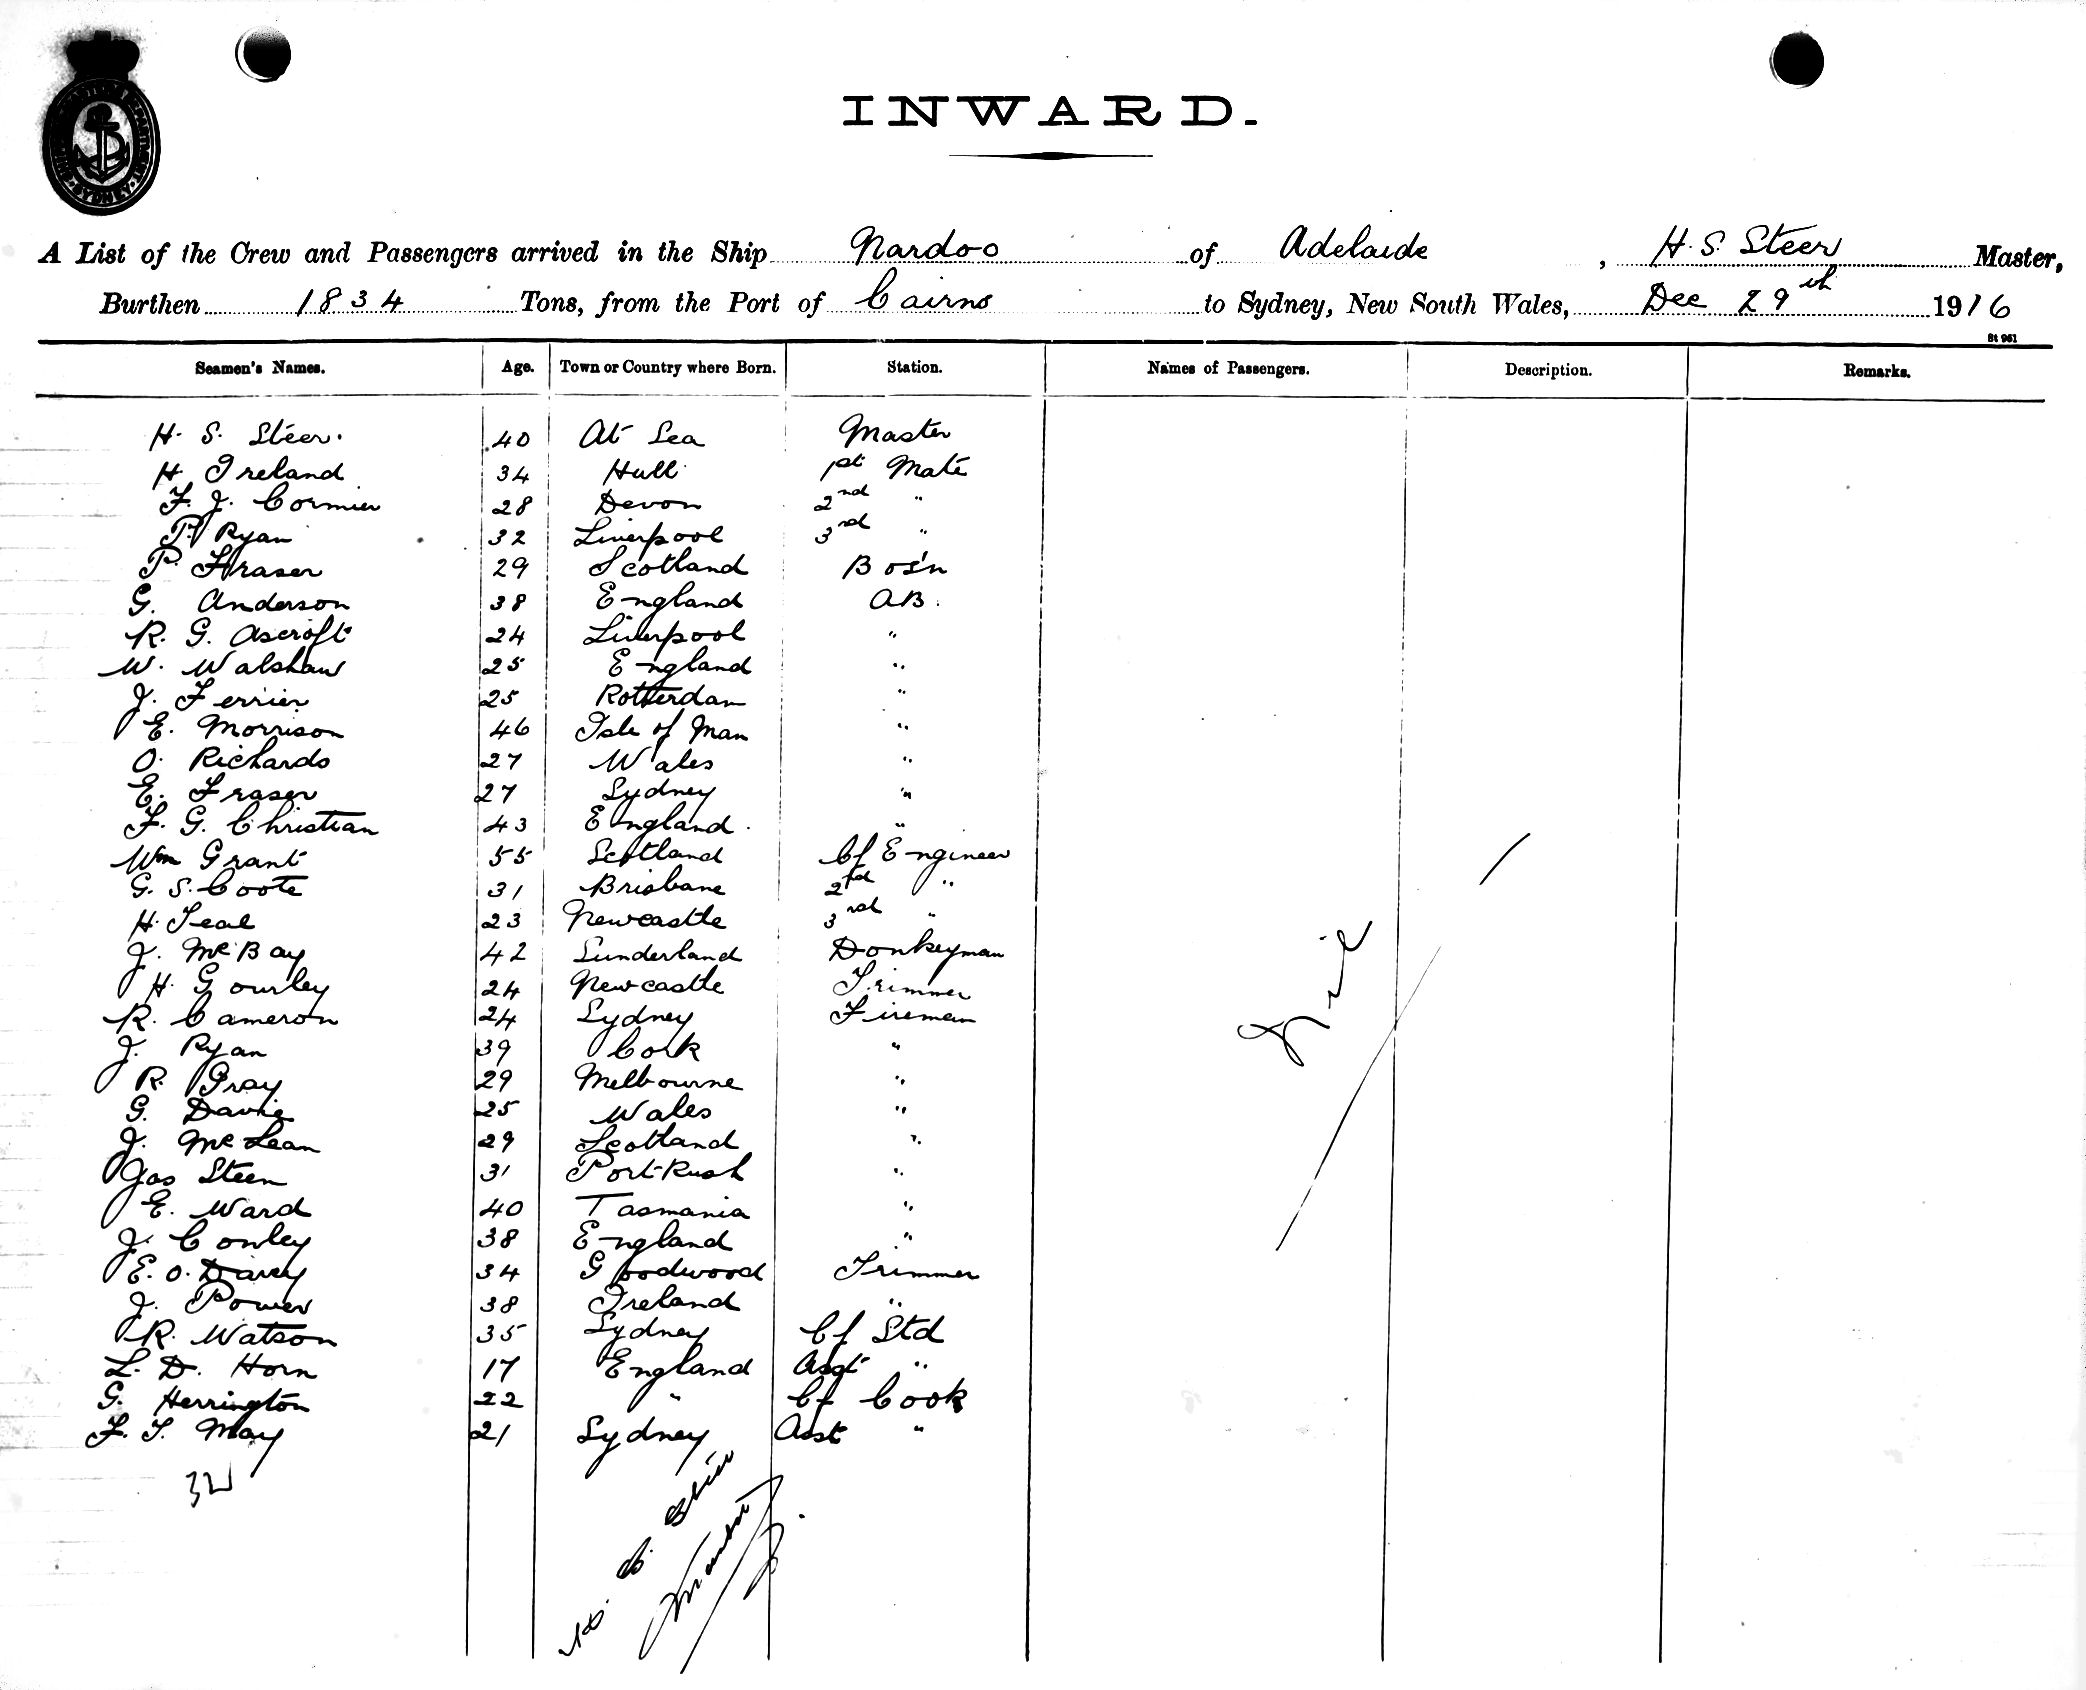 INWARD.
A List of the Crew and Passengers arrived in the Ship Nardoo of Adelaide, H. S. Steer Master,
Burthen 1834 Tons, from the Port of Cairns to Sydney, New South Wales, Dec 29th 1916
St 961
Seamen's Names. Age. Town or Country where Born. Station. Names of Passengers. Description. Remarks.
H. S. Steer. 40 At Sea Master
H. Ireland 34 Hull 1st Mate
F. J. Cormier 28 Devon 2nd "
P. Ryan 32 Liverpool 3rd "
P. Fraser 29 Scotland Bos'n
G. Anderson 38 England AB.
R. G. Ascroft 24 Liverpool "
W. Walshaw 25 England "
J. Ferrier 25 Rotterdam "
E. Morrison 46 Isle of Man "
O. Richards 27 Wales "
E. Fraser 27 Sydney "
F. G. Christian 43 England "
Wm Grant 55 Scotland Cf Engineer
G. S. Coote 31 Brisbane 2nd "
H. Teal 23 Newcastle 3rd "
J. McBay 42 Sunderland Donkeyman
H. Gourley 24 Newcastle Trimmer
R. Cameron 24 Sydney Fireman
J. Ryan 39 Cork "
R. Gray 29 Melbourne "
G. Davie 25 Wales "
J. McLean 29 Scotland "
Jas Steen 31 Port Rush "
E. Ward 40 Tasmania "
J. Conley 38 England "
E. O. Davey 34 Goodwood Trimmer
J. Power 38 Ireland "
R. Watson 35 Sydney Cf Std
L. D. Horn 17 England Asst "
G. Herrington 22 " Cf Cook
F. T. May 21 Sydney Asst "
32
H. S. Steer
Master